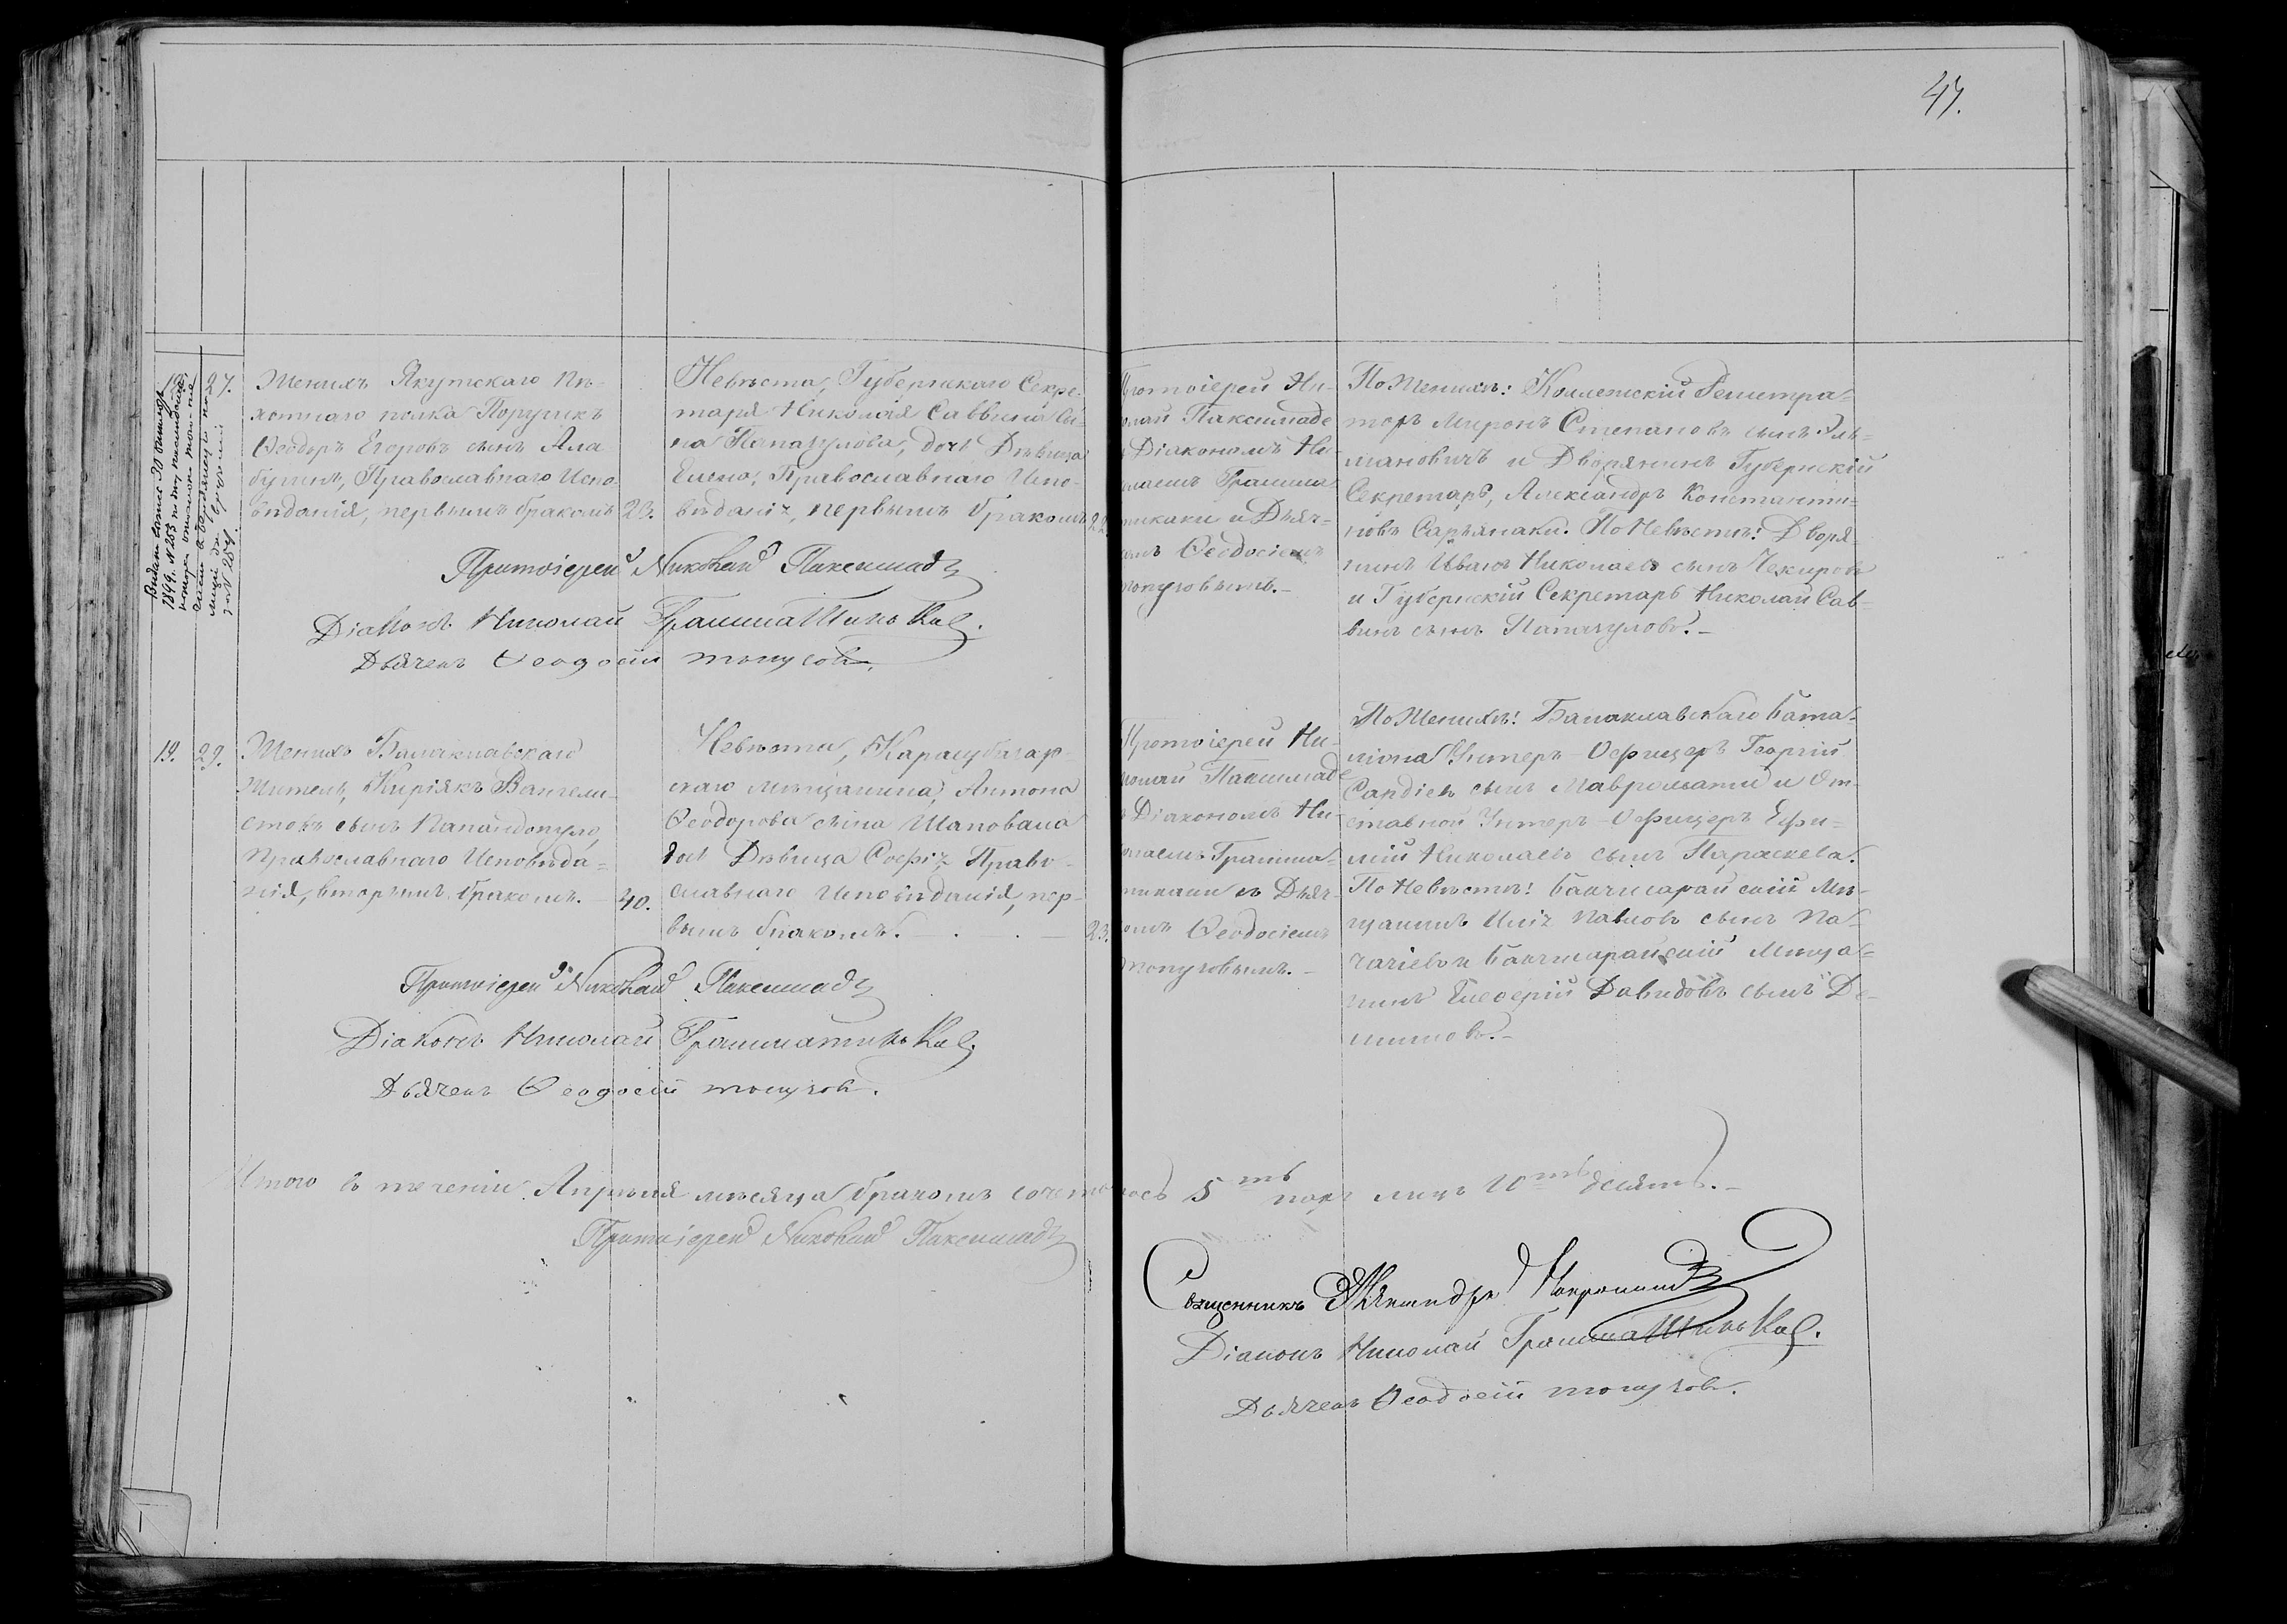 47.
27.
Женихъ Якутскаго Пѣ-
хотнаго полка Поручикъ
Ѳеодоръ Егоровъ сынъ Ала
бушевъ, Православнаго Испо-
вѣданія, первымъ бракомъ 23.
Невѣста, Губернскаго Секре-
таря Николая Саввина сы-
на Папачулова, дочь Дѣвица
Елена, Православнаго Испо-
вѣданія, первымъ бракомъ 22.
Протоіерей Ни-
колай Паксимаде
Діакономъ Ни-
колаемъ Грамма
тикаки и Дьяч-
комъ Ѳеодосіемъ
Топузовымъ.-
По Женихѣ: Коллежскій Регистра-
торъ Миронъ Степановъ сынъ
мановичъ и Дворянинъ Губернскій
Секретарь, Александръ Константи-
новъ Сарьянаки. По Невѣстѣ: Дворя-
нинъ Иванъ Николаевъ сынъ Чекировъ
и Губернскій Секретарь Николай Сав-
винъ сынъ Папачуловъ.-
Протоіерей Николай Паксимаде
Діаконъ Николай Грамматикаки.
Дьячекъ Ѳеодосій Топузовъ.
19. 29.
Женихъ Балаклавскаго
Житель, Киріякъ Вангели-
стовъ сынъ Папандопуло,
Православнаго Исповѣда-
нія, вторымъ бракомъ. - 40.
Невѣста, Карасубазар-
скаго мѣщанина, Антона
Ѳеодорова сына Шаповала
дочь Дѣвица Софія Право-
славнаго Исповѣданія, пер-
вымъ бракомъ. 23.
Протоіерей Ни-
колай Паксимаде
Діакономъ Ни-
колаемъ Грамма-
тикаки съ Дьяч-
комъ Ѳеодосіемъ
Топузовымъ.-
По Женихѣ: Балаклавскаго Бата-
ліона Унтеръ-Офицеръ Георгій
сынъ Мавромати и От-
ставной Унтеръ-Офицеръ Ефи-
мій Николаевъ сынъ Параскева.
По Невѣстѣ: Бахчисарайскій Мѣ-
щанинъ Илія Павловъ сынъ Па-
и Бахчисарайскій Мѣща-
нинъ Елевферій Давидовъ сынъ
Протоіерей Николай Паксимаде
Діаконъ Николай Грамматикаки.
Дьячекъ Ѳеодосій Топузовъ.
Итого въ теченіи Апрѣля мѣсяца бракомъ сочеталось 5ть паръ лицъ 10ть десять.-
Протоіерей Николай Паксимаде
Священникъ Александръ
Діаконъ Николай Грамматикаки.
Дьячекъ Ѳеодосій Топузовъ.